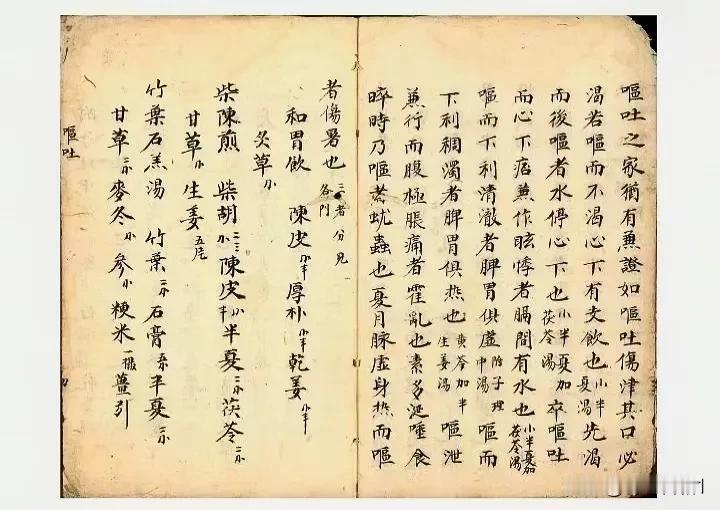 嘔吐之家猶有兼證如嘔吐傷津其口必
渴若嘔而不渴心下有支飲也小半夏湯先渴
而後嘔者水停心下也小半夏加茯苓湯卒嘔吐
而心下痞兼作眩悸者膈間有水也小半夏加茯苓湯
嘔而下利清澈者脾胃俱虛附子理中湯嘔而
下利稠濁者脾胃俱热也黄芩加半夏生姜湯嘔泄
兼行而腹極脹痛者霍亂也素多涎唾食
晬時乃嘔者蚘蟲也夏月脉虛身热而嘔
者傷暑也三者分見各門
和胃飲 陳皮小半厚朴小半乾姜小半
炙草小
柴陳煎 柴胡二三小陳皮小半半夏二小茯苓二小
甘草小 生姜五片
竹葉石羔湯 竹葉二小石膏五小半夏二小
甘草二小麥冬小參小粳米一撮薑引
嘔吐